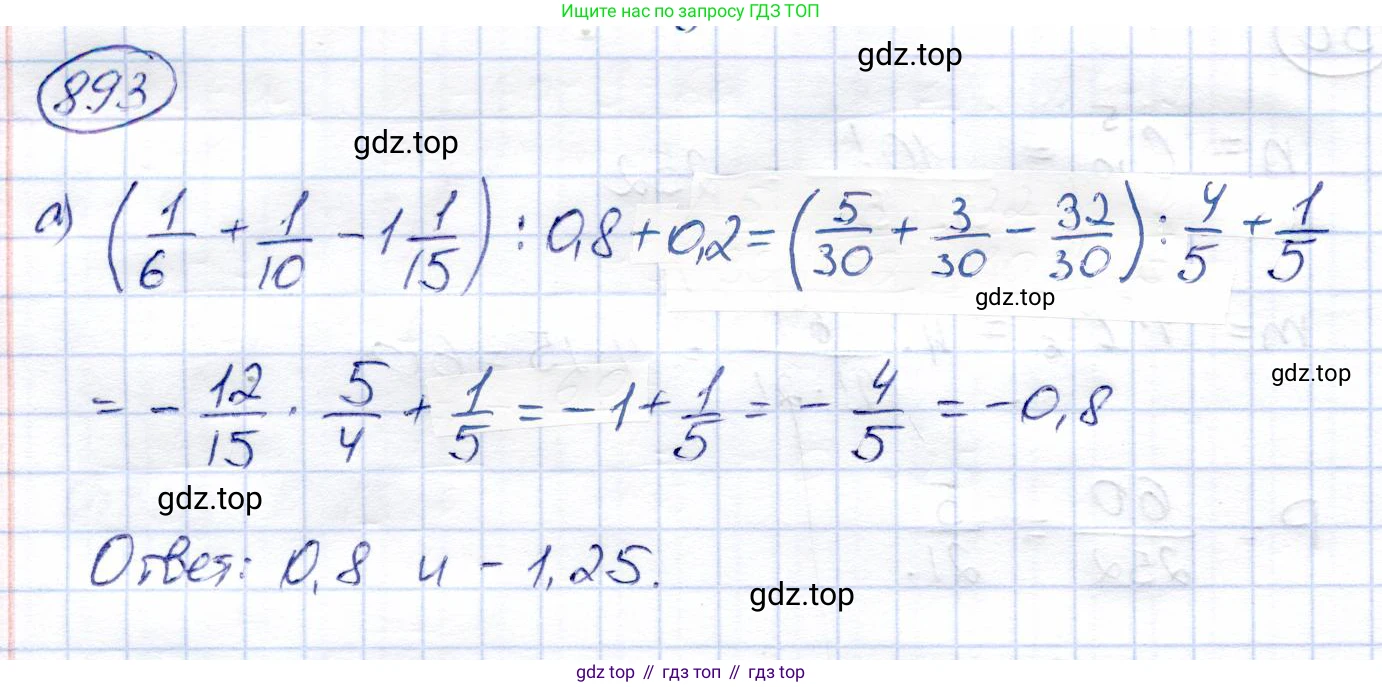 Ищите нас по запросу ГДЗ ТОП
gdz.top
893
gdz.top
а) (1/6 + 1/10 - 1 1/15) : 0,8 + 0,2 = (5/30 + 3/30 - 32/30) : 4/5 + 1/5
gdz.top
gdz.top
= - 12/15 · 5/4 + 1/5 = -1 + 1/5 = - 4/5 = -0,8
gdz.top
Ответ: 0,8 и -1,25.
gdz.top
gdz top // гдз топ // gdz top